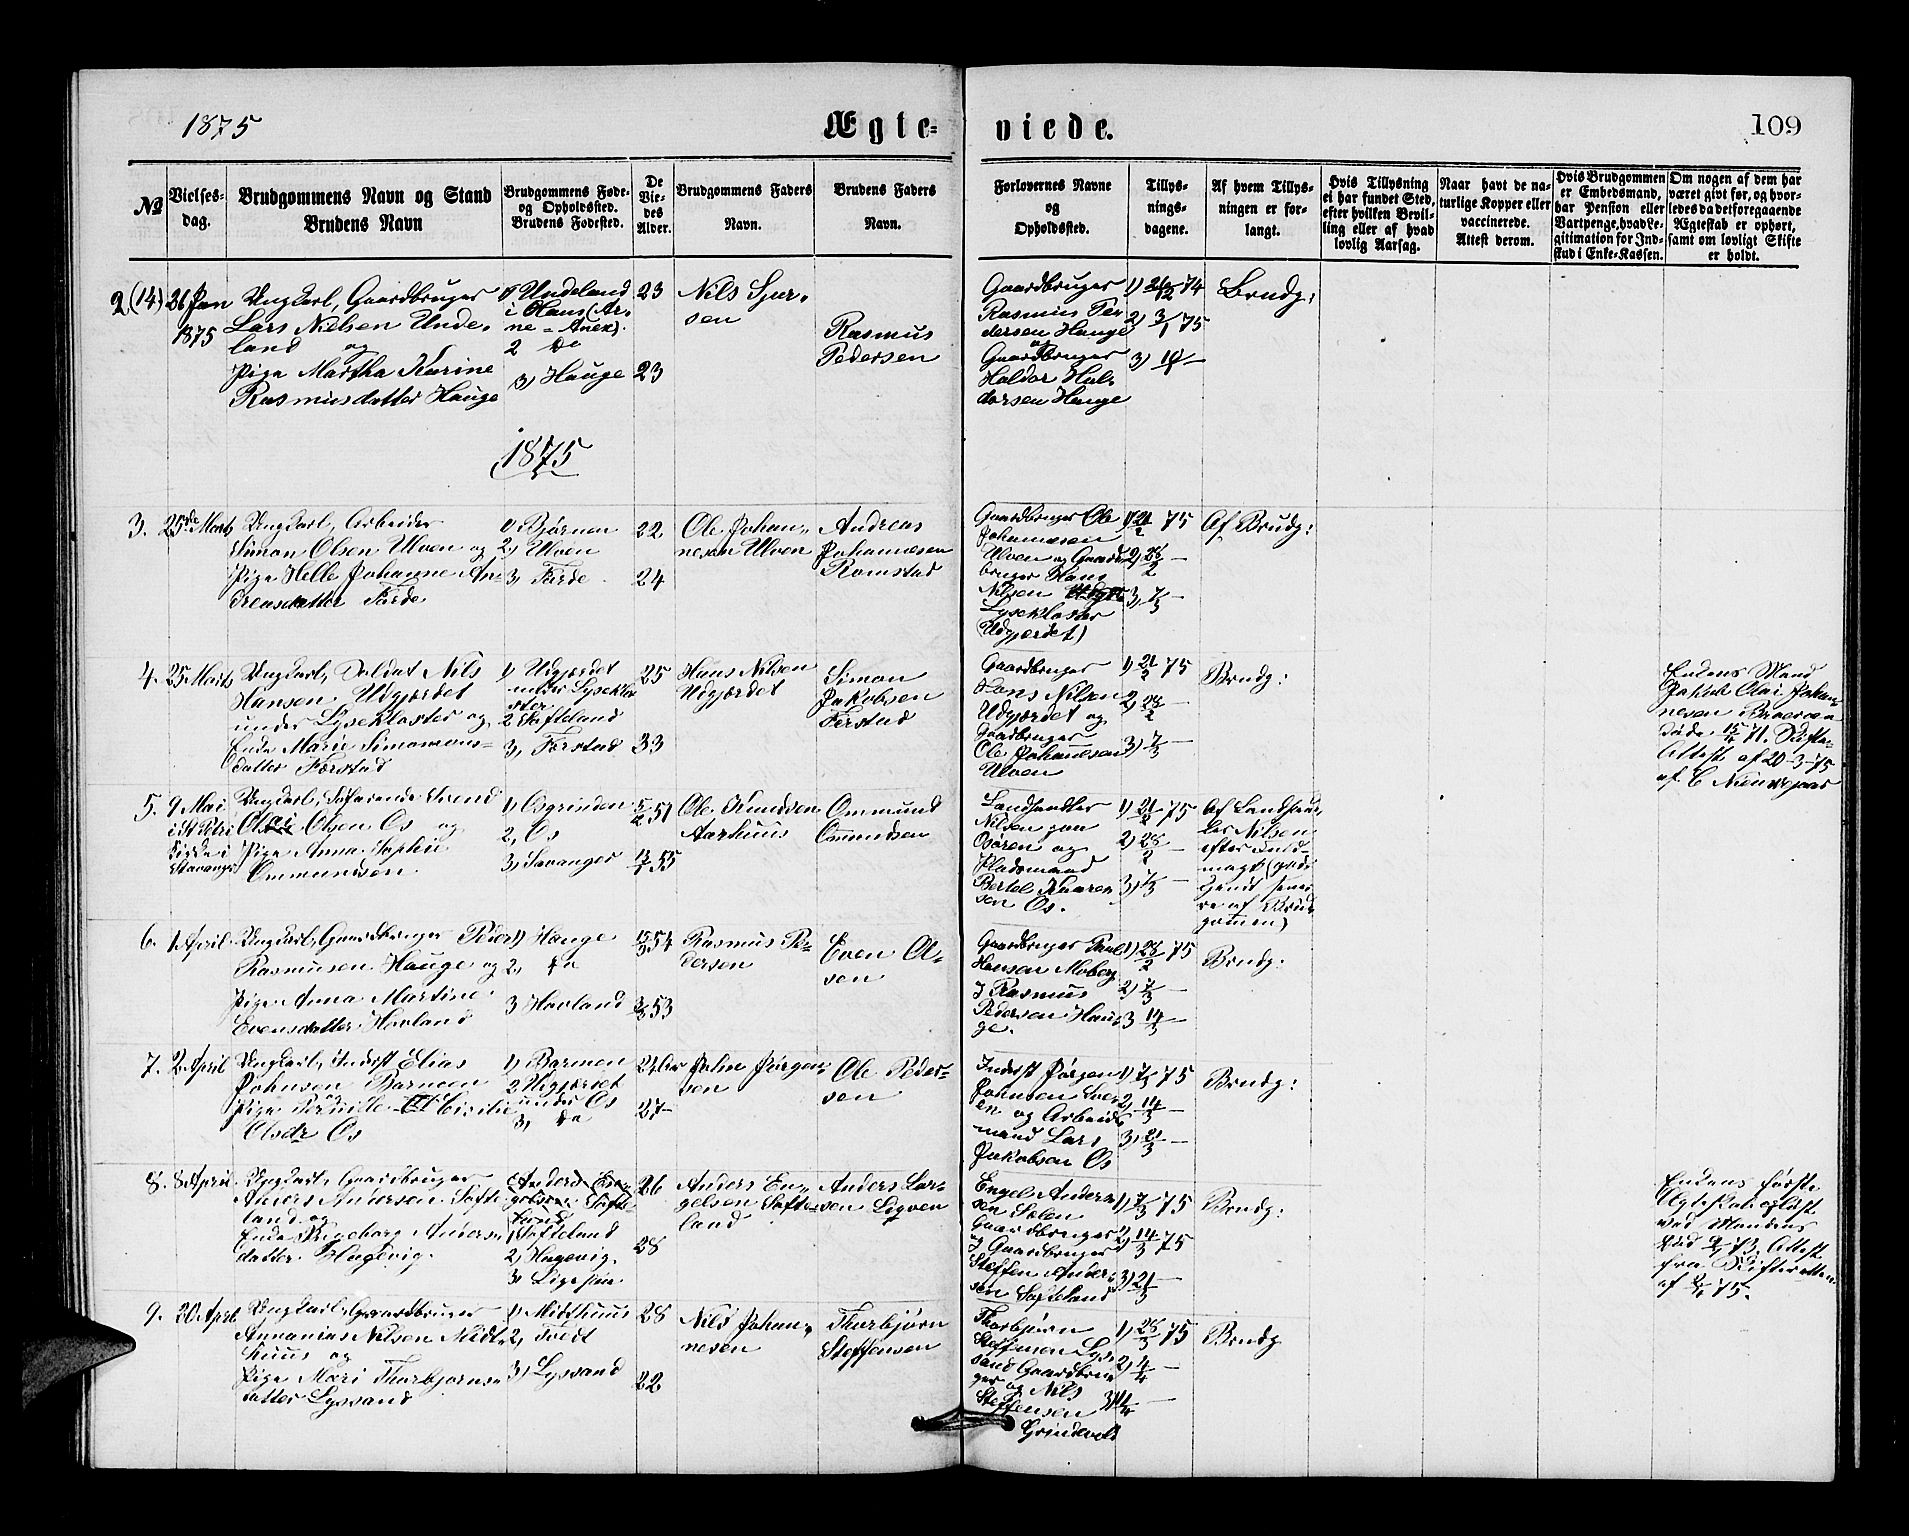 1875
Ægte-
viede.
109
№
Vielses-
dag.
Brudgommens Navn og Stand
Brudens Navn
Brudgommens Føde-
og Opholdssted.
Brudens Fødested.
De
Vie-
des
Alder.
Brudgommens Faders
Navn.
Brudens Faders
Navn.
Forlovernes Navne
og
Opholdssted.
Tillys-
nings-
dagene.
Af hvem Tillys-
ningen er for-
langt.
Hvis Tillysning
ei har fundet Sted,
efter hvilken Bevil-
ling eller af hvad
lovlig Aarsag.
Naar havt de na-
turlige Kopper eller
vaccinerede.
Attest derom.
Hvis Brudgommen
er Embedsmand,
har Pension eller
Vartpenge, hvad Le-
gitimation for Ind-
skud i Enke-Kassen.
Om nogen af dem har
været givt før, og hvor-
ledes da det foregaaende
Ægteskab er ophørt,
samt om lovligt Skifte
er holdt.
2 (14)
26 Jan
1875
Ungkarl, Gaardbruger
Lars Nielsen Unde-
land og
Pige Martha Karine
Rasmusdatter Hauge
1) Undeland
i Haus (Ar-
ne-Anex).
2 do
3) Hauge
23
23
Nils Sjur-
sen
Rasmus
Pedersen
Gaardbruger
Rasmus Pe-
dersen Hauge
og
Gaardbruger
Haldor Hal-
dorsen Hauge
1) 26/12 74
2) 3/1 75
3) 10/1 —
Brudg:
1875
3.
25de Marts
Ungkarl, Arbeider
Simon Olsen Ulven og
Pige Helle Johanne An-
dreasdatter Førde
1) Bjørnen
2) Ulven
3) Førde
22
24
Ole Johan-
nesen Ulven
Andreas
Johannesen
Romstad
Gaardbruger Ole
Johannesen
Ulven og Gaard-
bruger Hans
Nilsen
Lysekloster
Udgjærdet)
1) 21/2 75
2) 28/2 —
3) 7/3 —
Af Brudg:
4.
25 Marts
Ungkarl, Soldat Nils
Hansen Udgjærdet
under Lysekloster og
Enke Marie Simonsens-
datter Førstad
1) Udgjærdet
under Lyseklo-
ster
2 Søfteland
3) Førstad
25
33
Hans Nilsen
Udgjærdet
Simon
Jakobsen
Førstad
Gaardbruger
Hans Nilsen
Udgjærdet og
Gaardbruger
Ole Johannesen
Ulven
1) 21/2 75
2) 28/2 —
3) 7/3 —
Brudg:
Enkens Mand
Olai Johan-
nesen
døde 15/4 71. Skifte-
Attest af 20-3-75
af C
5.
9 Mai
i St Petri
Kirke i
Stavanger
Ungkarl, Søfarende Svend
Olai Olsen Os og
Pige Anna Sophie
Ommundsen
1) Osgrinden
2) Os
3) Stavanger
5/2 51
13/1 55
Ole Knudsen
Aarhuus
Ommund
Ommundsen
Landhandler
Nilsen paa
Osøren og
Pladsmand
Bertel Haaren-
sen Os.
1) 21/2 75
2) 28/2 —
3) 7/3 —
Af Landhand-
ler Nilsen
efter Fuld-
magt (god-
kjendt sene-
re af Brud-
gommen)
6.
1 April
Ungkarl, Gaardbruger Peder
Rasmusen Hauge og
Pige Anna Martine
Evensdatter Hovland
1) Hauge
2) do
3 Hovland
54
53
Rasmus Pe-
dersen
Even Ol-
sen
Gaardbruger
Hansen Moberg
Rasmus
Pedersen Hau-
ge.
1) 28/2 75
2) 7/3 —
3 14/3 —
Brudg:
7.
2 April
Ungkarl, Inderst Elias
Johnsen Barmen
og
Pige Pernille Cicilie
Olsdr Os
1) Barmen
2 Udgjærdet
under Os
3, do
27
John Jørgen-
sen
Ole Peder-
sen
Inderst Jørgen
Johnsen
og Arbeids-
mand Lars
Jakobsen Os
1) 7/3 75
2) 14/3 —
3) 21/3 —
Brudg:
8.
8 April
Ungkarl, Gaardbruger
Anders Andersen Søfte-
land og
Enke Ingeborg Anders-
datter Hagevig.
1) Søfteland
2) Hagevig.
26
28
Anders En-
gelsen Søfte-
land
Anders Lar-
sen
Engel Ander-
sen
Gaardbruger
og Gaardbruger
Steffen Ander-
sen Søfteland
1) 7/3 75
2) 14/3 75
3) 21/3 —
Brudg:
Enkens første
Ægteskab opløst
ved Mandens
Død 73. Attest
fra Skifteretten
af 75.
9.
20 April
Ungkarl, Gaardbruger
Annanias Nilsen Midt-
huus og
Pige Mari Thorbjørns-
datter Lyssand
1) Midthuus
2, Tvedt
3) Lyssand
28
22
Nils Johan-
nesen
Thorbjørn
Steffensen
Thorbjørn
Steffensen Lys-
sand Gaardbru-
ger og Nils
Steffensen
Grindevold
1) 28/3 75
2) 4/4 —
3) 11/4 —
Brudg